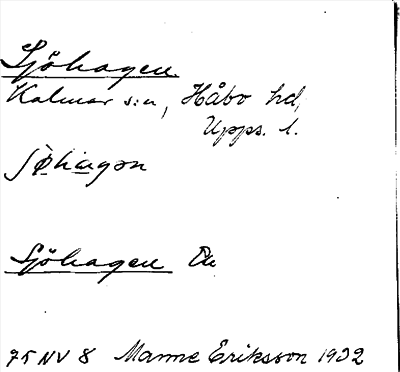 Sjöhagen
Kalmar s:n, Håbo hd,
Upps. l.
ʃø̀hàgən
Sjöhagen Ön
75 NV 8 Manne Eriksson 1932